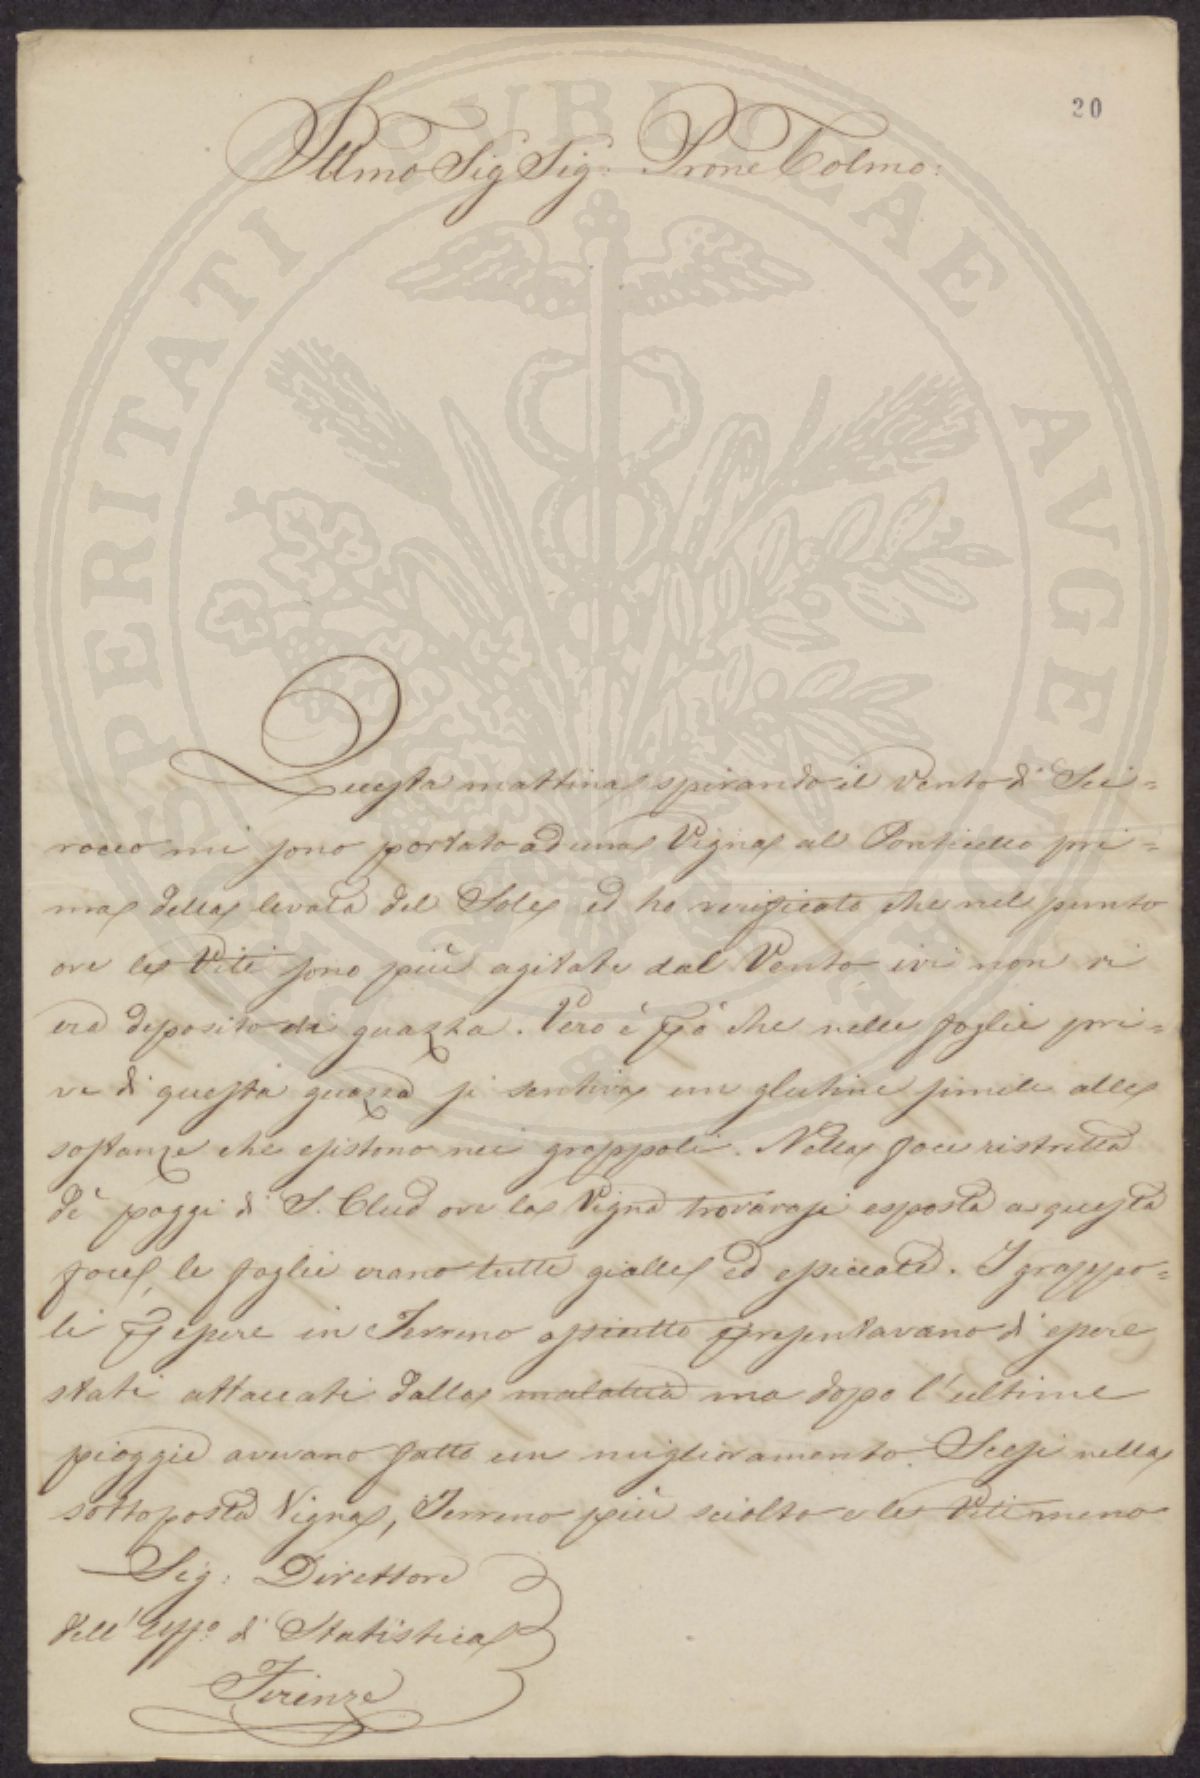 20
Illmo Sig Sig: Prone Colmo:
Questa mattina spirando il Vento di Sci=
rocco mi sono portato ad una Vigna al Ponticello pri=
ma della levata del Sole ed ho verificato che nel punto
ove le Viti sono più agitate dal Vento ivi non vi
era deposito di guazza. Vero è che nelle foglie pri=
ve di questa guazza si sentiva un glutine simile alle
sostanze che esistono nei grappoli. Nella foce ristretta
de poggi di S. Clud ove la Vigna trovavasi esposta a questa
foce, le foglie erano tutte gialle ed essiccate. I grappo=
li essere in Terreno asciutto presentavano di essere
stati attaccati dalla malattia ma dopo l'ultime
pioggie avevano fatto un miglioramento. Scesi nella
sottoposta Vigna, Terreno più sciolto e le Viti meno
Sig: Direttore
dell' Uffo. di Statistica
Firenze
PERITATI PVBLICAE AVGE